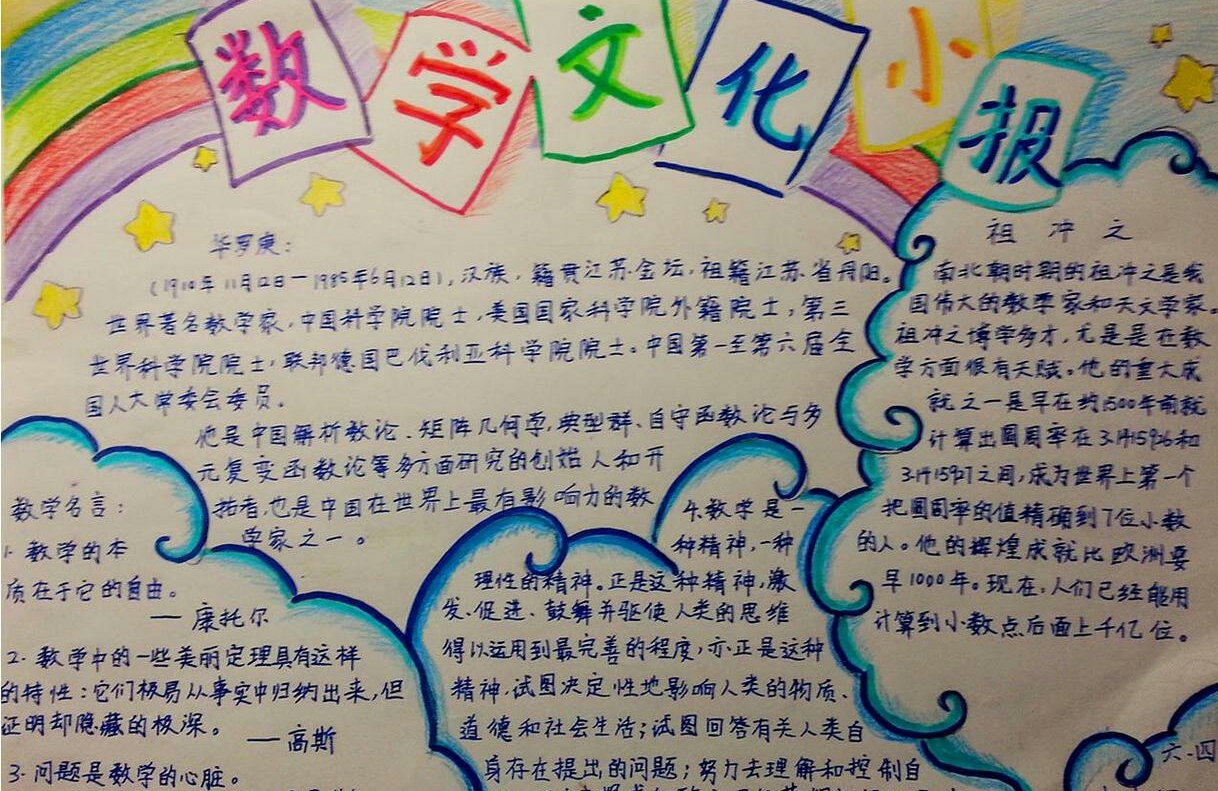 数学文化小报
华罗庚：
（1910年11月12日—1985年6月12日），汉族，籍贯江苏金坛，祖籍江苏省丹阳。
世界著名数学家，中国科学院院士，美国国家科学院外籍院士，第三
世界科学院院士，联邦德国巴伐利亚科学院院士。中国第一至第六届全
国人大常委会委员。
他是中国解析数论、矩阵几何学，典型群、自守函数论与多
元复变函数论等多方面研究的创始人和开
拓者，也是中国在世界上最有影响力的数
学家之一。
数学名言：
1. 数学的本
质在于它的自由。
—康托尔
2. 数学中的一些美丽定理具有这样
的特性：它们极易从事实中归纳出来，但
证明却隐藏的极深。
—高斯
3. 问题是数学的心脏。
4. 数学是一
种精神，一种
理性的精神。正是这种精神，激
发、促进、鼓舞并驱使人类的思维
得以运用到最完善的程度，亦正是这种
精神，试图决定性地影响人类的物质、
道德和社会生活；试图回答有关人类自
身存在提出的问题；努力去理解和控制自
祖冲之
南北朝时期的祖冲之是我
国伟大的数学家和天文学家。
祖冲之博学多才，尤是是在数
学方面很有天赋。他的重大成
就之一是早在约1500年前就
计算出圆周率在3.1415926和
3.1415927之间，成为世界上第一个
把圆周率的值精确到7位小数
的人。他的辉煌成就比欧洲要
早1000年。现在，人们已经能用
计算到小数点后面上千亿位。
六·四